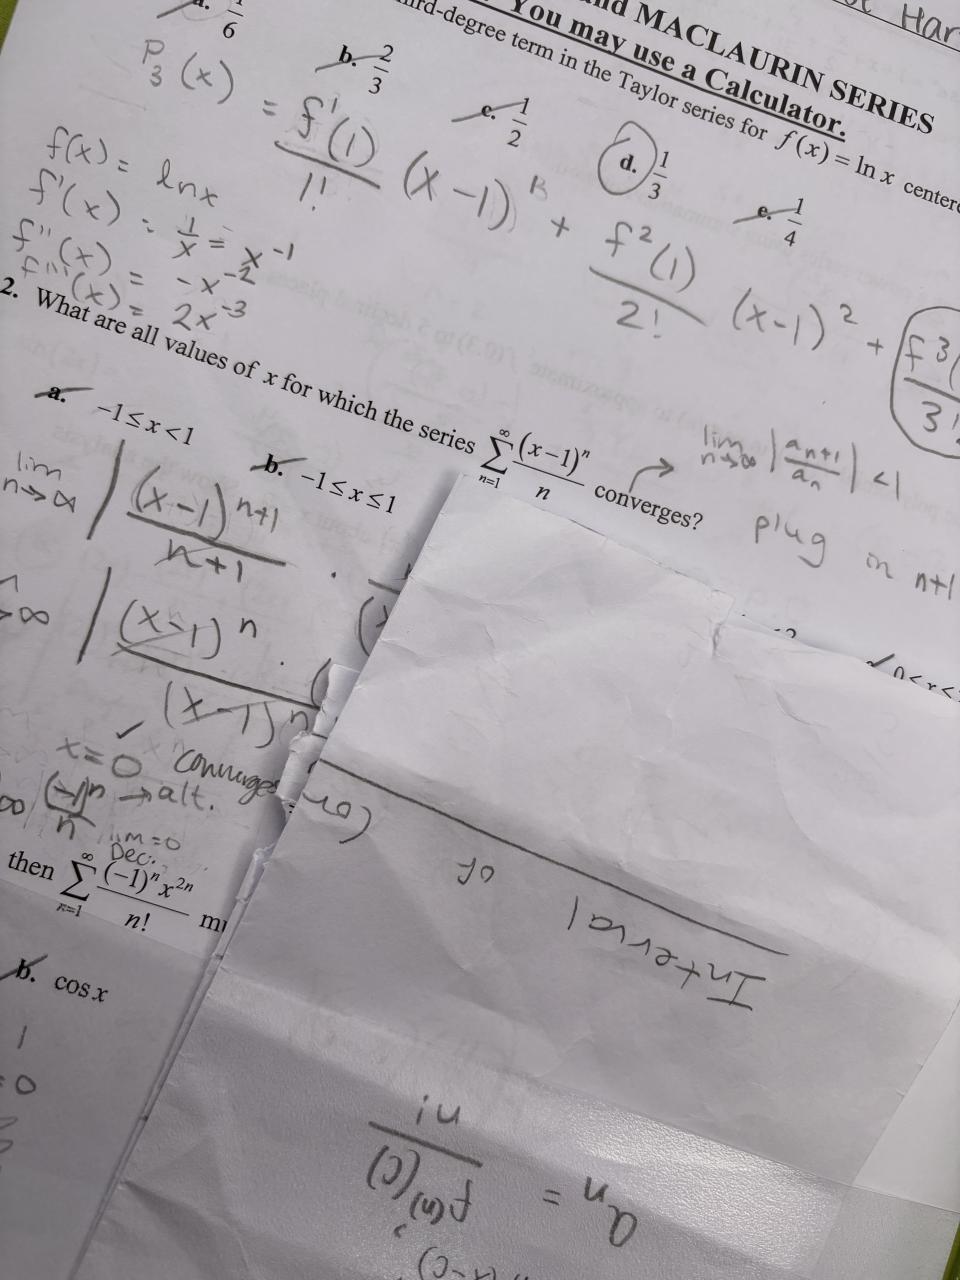 Har
nd MACLAURIN SERIES
You may use a Calculator.
rd-degree term in the Taylor series for f(x) = ln x centere
a. 1/6
b. 2/3
c. 1/2
d. 1/3
e. 1/4
P₃(x) = f'(1)/1! (x-1) + f²(1)/2! (x-1)² + f³(/3!
f(x) = lnx
f'(x) = 1/x = x⁻¹
f''(x) = -x⁻²
f'''(x) = 2x⁻³
2. What are all values of x for which the series ∑_{n=1}^{∞} (x-1)ⁿ/n converges?
a. -1≤x<1
b. -1≤x≤1
0<x<
lim n→∞ |aₙ₊₁/aₙ| <1
plug in n+1
lim n→∞ | (x-1)ⁿ⁺¹/n+1 ·
→∞ | (x-1)ⁿ · (
(x-1)ⁿ
x=0 ✓ converges
∞ | (-1)ⁿ/n → alt.
lim=0
Dec.
then ∑_{n=1}^{∞} (-1)ⁿx²ⁿ/n!
b. cos x
1
=0
Interval of Con
aₙ = f⁽ⁿ⁾(c)/n!
(x-c)ⁿ